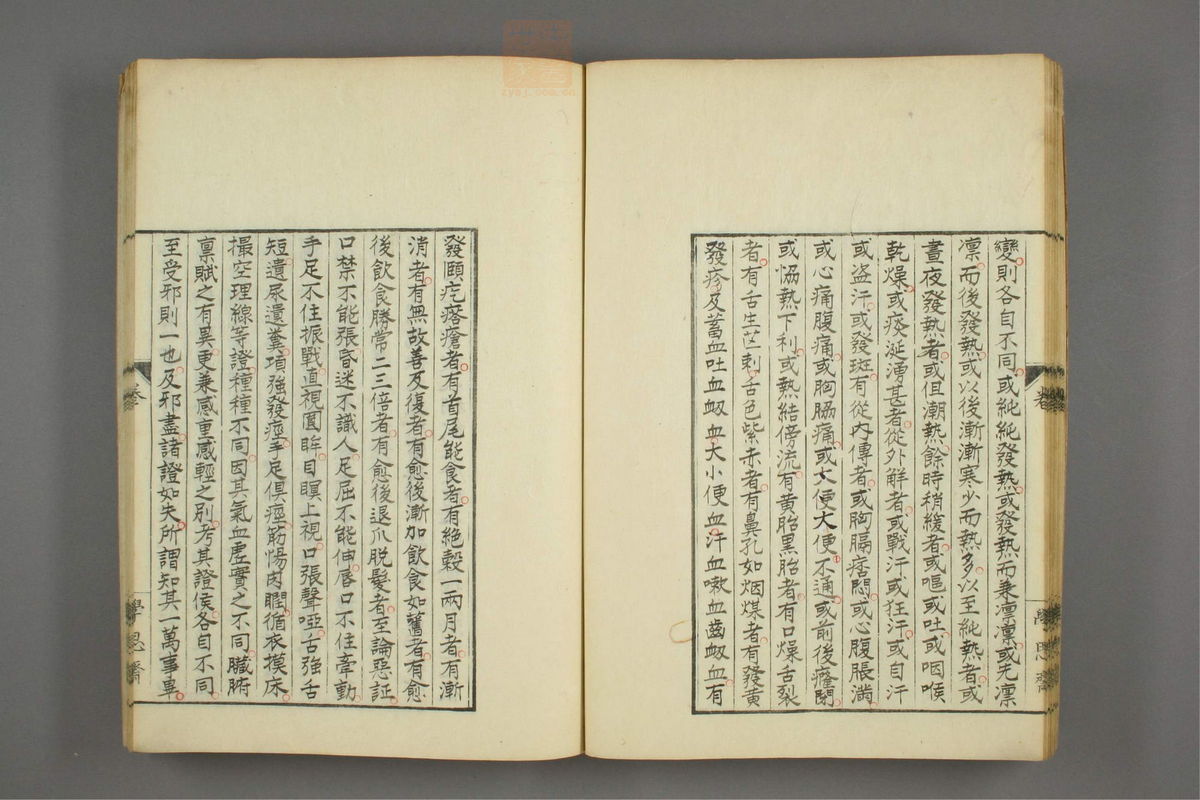 變則各自不同或純純發熱或發熱而兼凛凛或先凛
凛而後發熱或以後漸漸寒少而熱多以至純熱者或
晝夜發熱者或但潮熱餘時稍緩者或嘔或吐或咽喉
乾燥或痰涎湧甚者從外解者或戰汗或狂汗或自汗
或盜汗或發斑有從內傳者或胸膈痞悶或心腹脹満
或心痛腹痛或胸脇痛或大便大便不通或前後癃閉
或恊熱下利或熱結傍流有黄胎黒胎者有口燥舌裂
者有舌生芒刺舌色紫赤者有鼻孔如烟煤者有發黄
發疹及蓄血吐血衂血大小便血汗血嗽血齒衂血有
發頤疙瘩瘡者有首尾能食者有絕穀一兩月者有漸
消者有無故善及復者有愈後漸加飲食如舊者有愈
後飲食勝常二三倍者有愈後退爪脱髮者至論惡証
口禁不能張昏迷不識人足屈不能伸唇口不住牽動
手足不住振戰直視圓眸目瞑上視口張聲啞舌強舌
短遺尿遺糞項強發痙手足俱痙筋惕肉瞤循衣摸床
撮空理線等證種種不同因其氣血虛實之不同臟腑
禀賦之有異更兼感重感輕之别考其證侯各自不同
至受邪則一也及邪盡諸證如失所謂知其一萬事畢
卷
學思齋